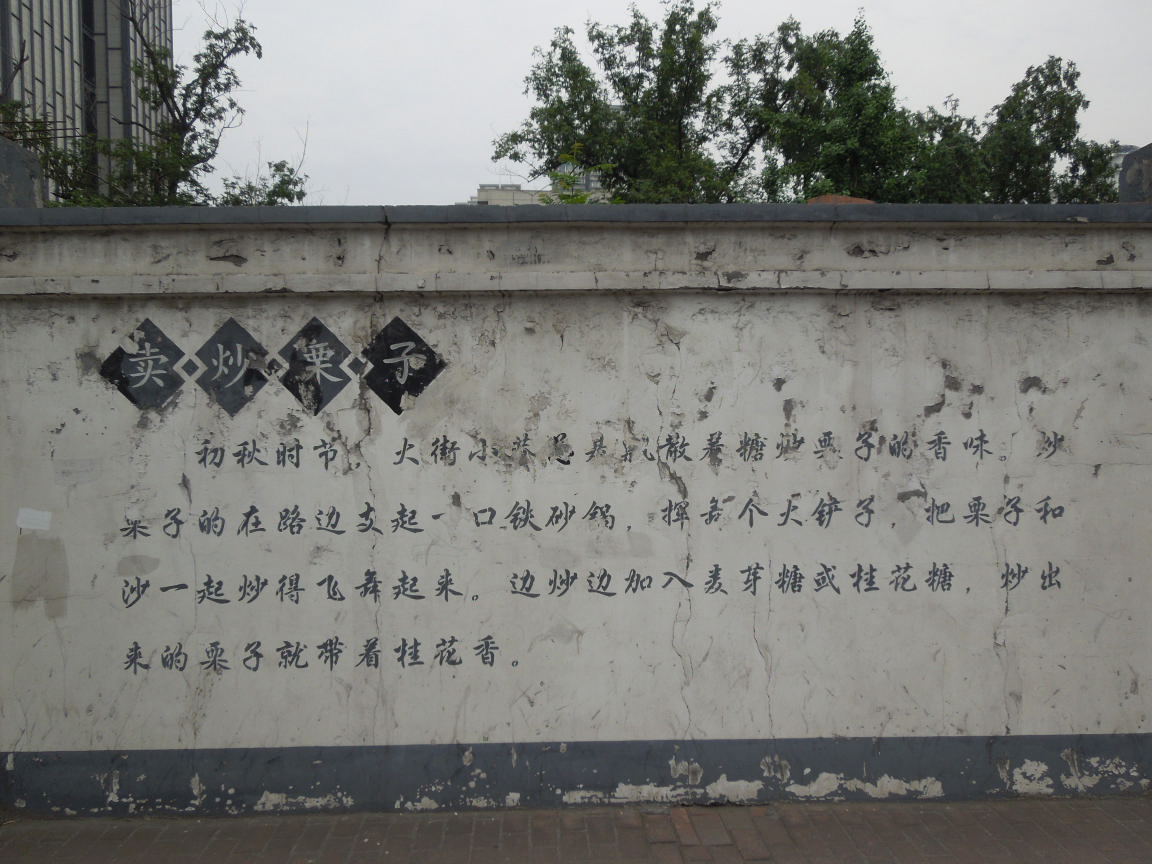 卖炒栗子
初秋时节，大街小巷总是飘散着糖炒栗子的香味。炒
栗子的在路边支起一口铁砂锅，挥舞个大铲子，把栗子和
沙一起炒得飞舞起来。边炒边加入麦芽糖或桂花糖，炒出
来的栗子就带着桂花香。